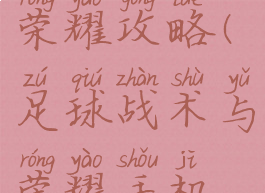 róng yào gōng lüè
荣耀攻略(
zú qiú zhàn shù yǔ
足球战术与
róng yào shǒu jī
荣耀手机